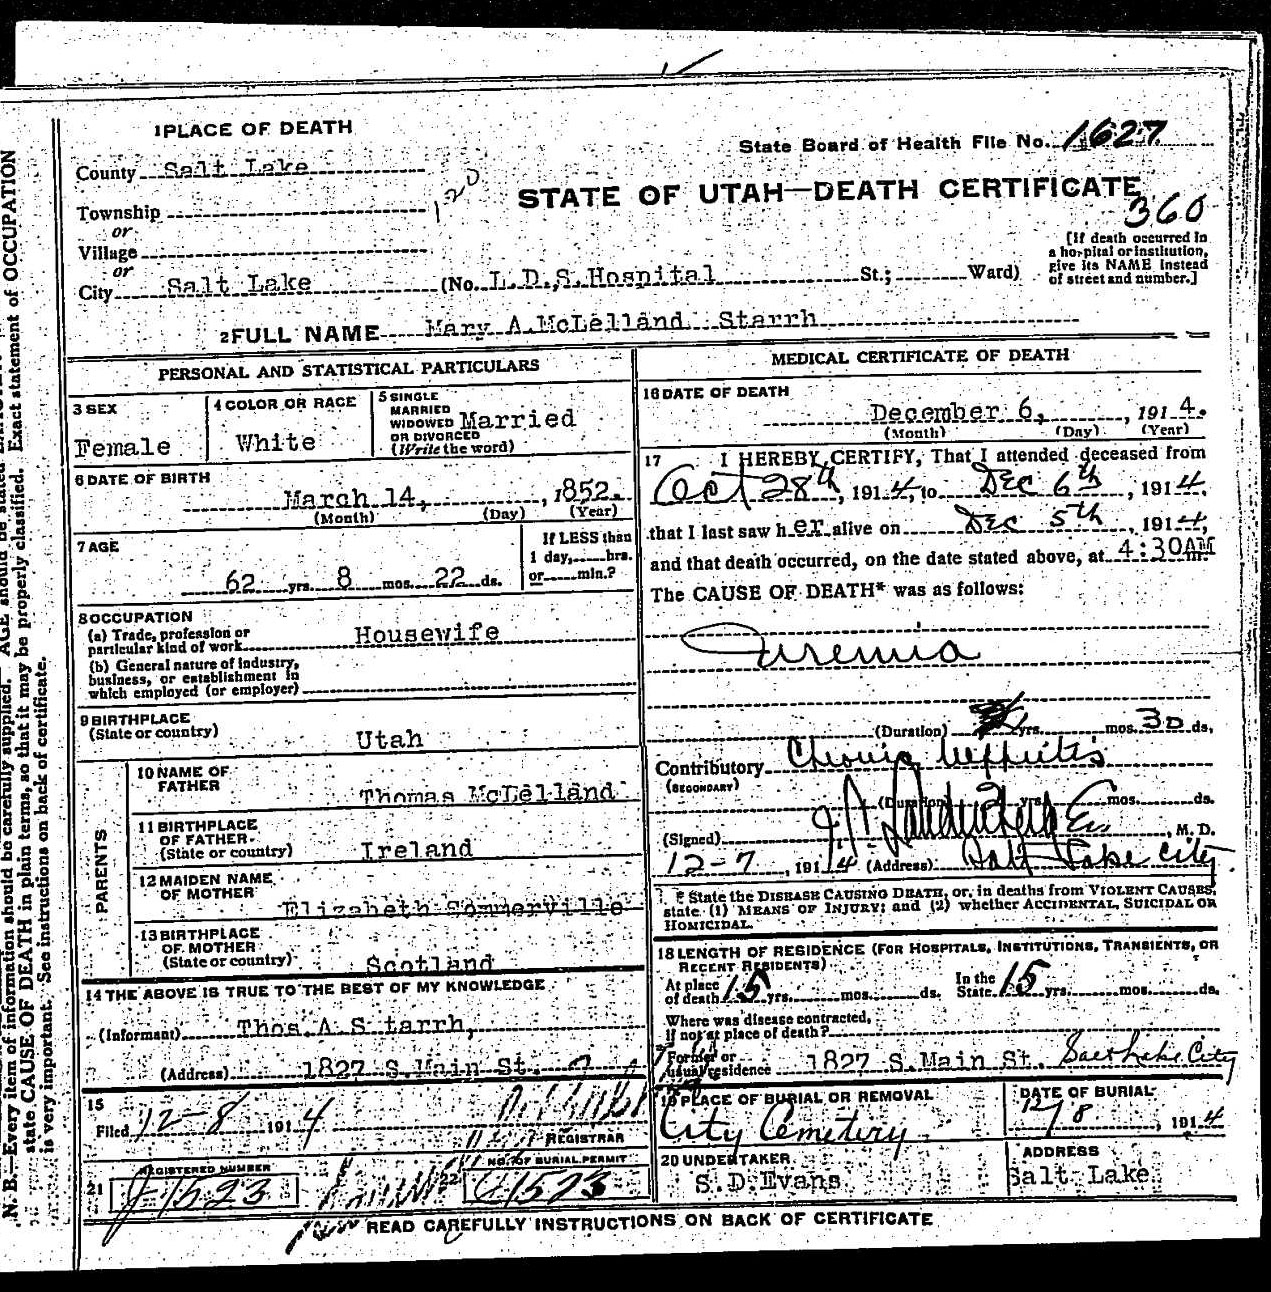 1 PLACE OF DEATH
State Board of Health File No. 1627
County Salt Lake
120
STATE OF UTAH—DEATH CERTIFICATE
360
Township
or
Village
or
[If death occurred in
a hospital or institution,
give its NAME instead
of street and number.]
City Salt Lake (No. L.D.S. Hospital St.; Ward)
2 FULL NAME Mary A. McLelland Starrh
PERSONAL AND STATISTICAL PARTICULARS
3 SEX
Female
4 COLOR OR RACE
White
5 SINGLE
MARRIED
WIDOWED
OR DIVORCED
(Write the word)
Married
6 DATE OF BIRTH
March 14, , 1852.
(Month) (Day) (Year)
7 AGE
62 yrs. 8 mos. 22 ds.
If LESS than
1 day, hrs.
or min.?
8 OCCUPATION
(a) Trade, profession or
particular kind of work Housewife
(b) General nature of industry,
business, or establishment in
which employed (or employer)
9 BIRTHPLACE
(State or country)
Utah
PARENTS
10 NAME OF
FATHER
Thomas McLelland
11 BIRTHPLACE
OF FATHER
(State or country)
Ireland
12 MAIDEN NAME
OF MOTHER
Elizabeth Sommerville
13 BIRTHPLACE
OF MOTHER
(State or country)
Scotland
14 THE ABOVE IS TRUE TO THE BEST OF MY KNOWLEDGE
(Informant) Thos A S tarrh,
(Address) 1827 S.Main St.
15
Filed 12-8 1914
REGISTRAR
REGISTERED NUMBER
21 J 1523
NO. OF BURIAL PERMIT
22 C 1523
MEDICAL CERTIFICATE OF DEATH
16 DATE OF DEATH
December 6, , 1914.
(Month) (Day) (Year)
17 I HEREBY CERTIFY, That I attended deceased from
Oct 28th, 1914, to Dec 6th, 1914,
that I last saw her alive on Dec 5th, 1914,
and that death occurred, on the date stated above, at 4:30AM m.
The CAUSE OF DEATH* was as follows:
Uremia
(Duration) yrs. mos. 30 ds.
Contributory Chronic Nephritis
(SECONDARY)
(Duration) yrs. mos. ds.
(Signed) , M. D.
12-7, 1914 (Address) Salt Lake City
* State the DISEASE CAUSING DEATH, or, in deaths from VIOLENT CAUSES,
state (1) MEANS OF INJURY; and (2) whether ACCIDENTAL, SUICIDAL OR
HOMICIDAL.
18 LENGTH OF RESIDENCE (FOR HOSPITALS, INSTITUTIONS, TRANSIENTS, OR
RECENT RESIDENTS)
At place
of death 15 yrs. mos. ds.
In the
State 15 yrs. mos. ds.
Where was disease contracted,
if not at place of death?
Former or
usual residence 1827 S.Main St. Salt Lake City
19 PLACE OF BURIAL OR REMOVAL
City Cemetery
DATE OF BURIAL
12/8, 1914
20 UNDERTAKER
S.D.Evans
ADDRESS
Salt Lake
READ CAREFULLY INSTRUCTIONS ON BACK OF CERTIFICATE
N. B.—Every item of information should be carefully supplied. AGE should be stated
state CAUSE OF DEATH in plain terms, so that it may be properly classified. Exact statement of OCCUPATION
is very important. See instructions on back of certificate.